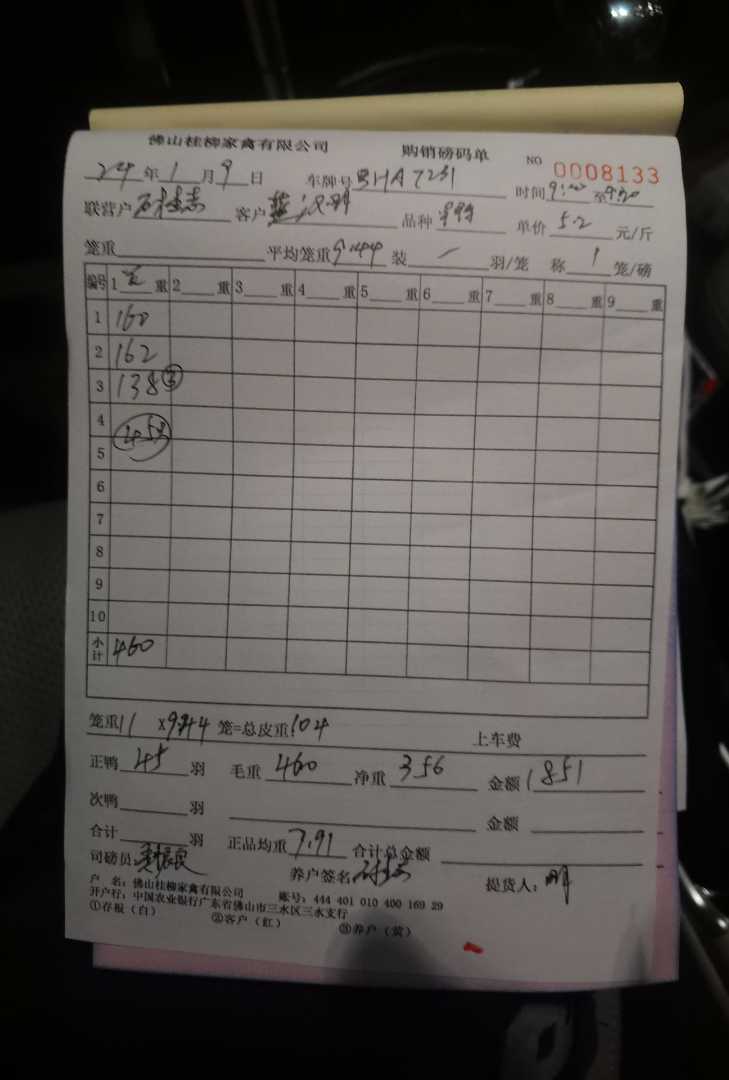 佛山桂柳家禽有限公司 购销磅码单 NO 0008133
24年1月9日 车牌号BHA7231 时间9:00至9:20
联营户 客户 品种 单价5.2元/斤
笼重 平均笼重9.44 装一羽/笼 称1笼/磅
编号 1重 2重 3重 4重 5重 6重 7重 8重 9重
1 160
2 162
3 138 ③
4
5
6
7
8
9
10
小计 460
笼重11 x9.44笼=总皮重104 上车费
正鸭45羽 毛重460 净重356 金额1851
次鸭羽 金额
合计羽 正品均重7.91 合计总金额
司磅员 养户签名 提货人:明
户 名:佛山桂柳家禽有限公司 账号:444 401 010 400 169 29
开户行:中国农业银行广东省佛山市三水区三水支行
①存根(白) ②客户(红) ③养户(黄)